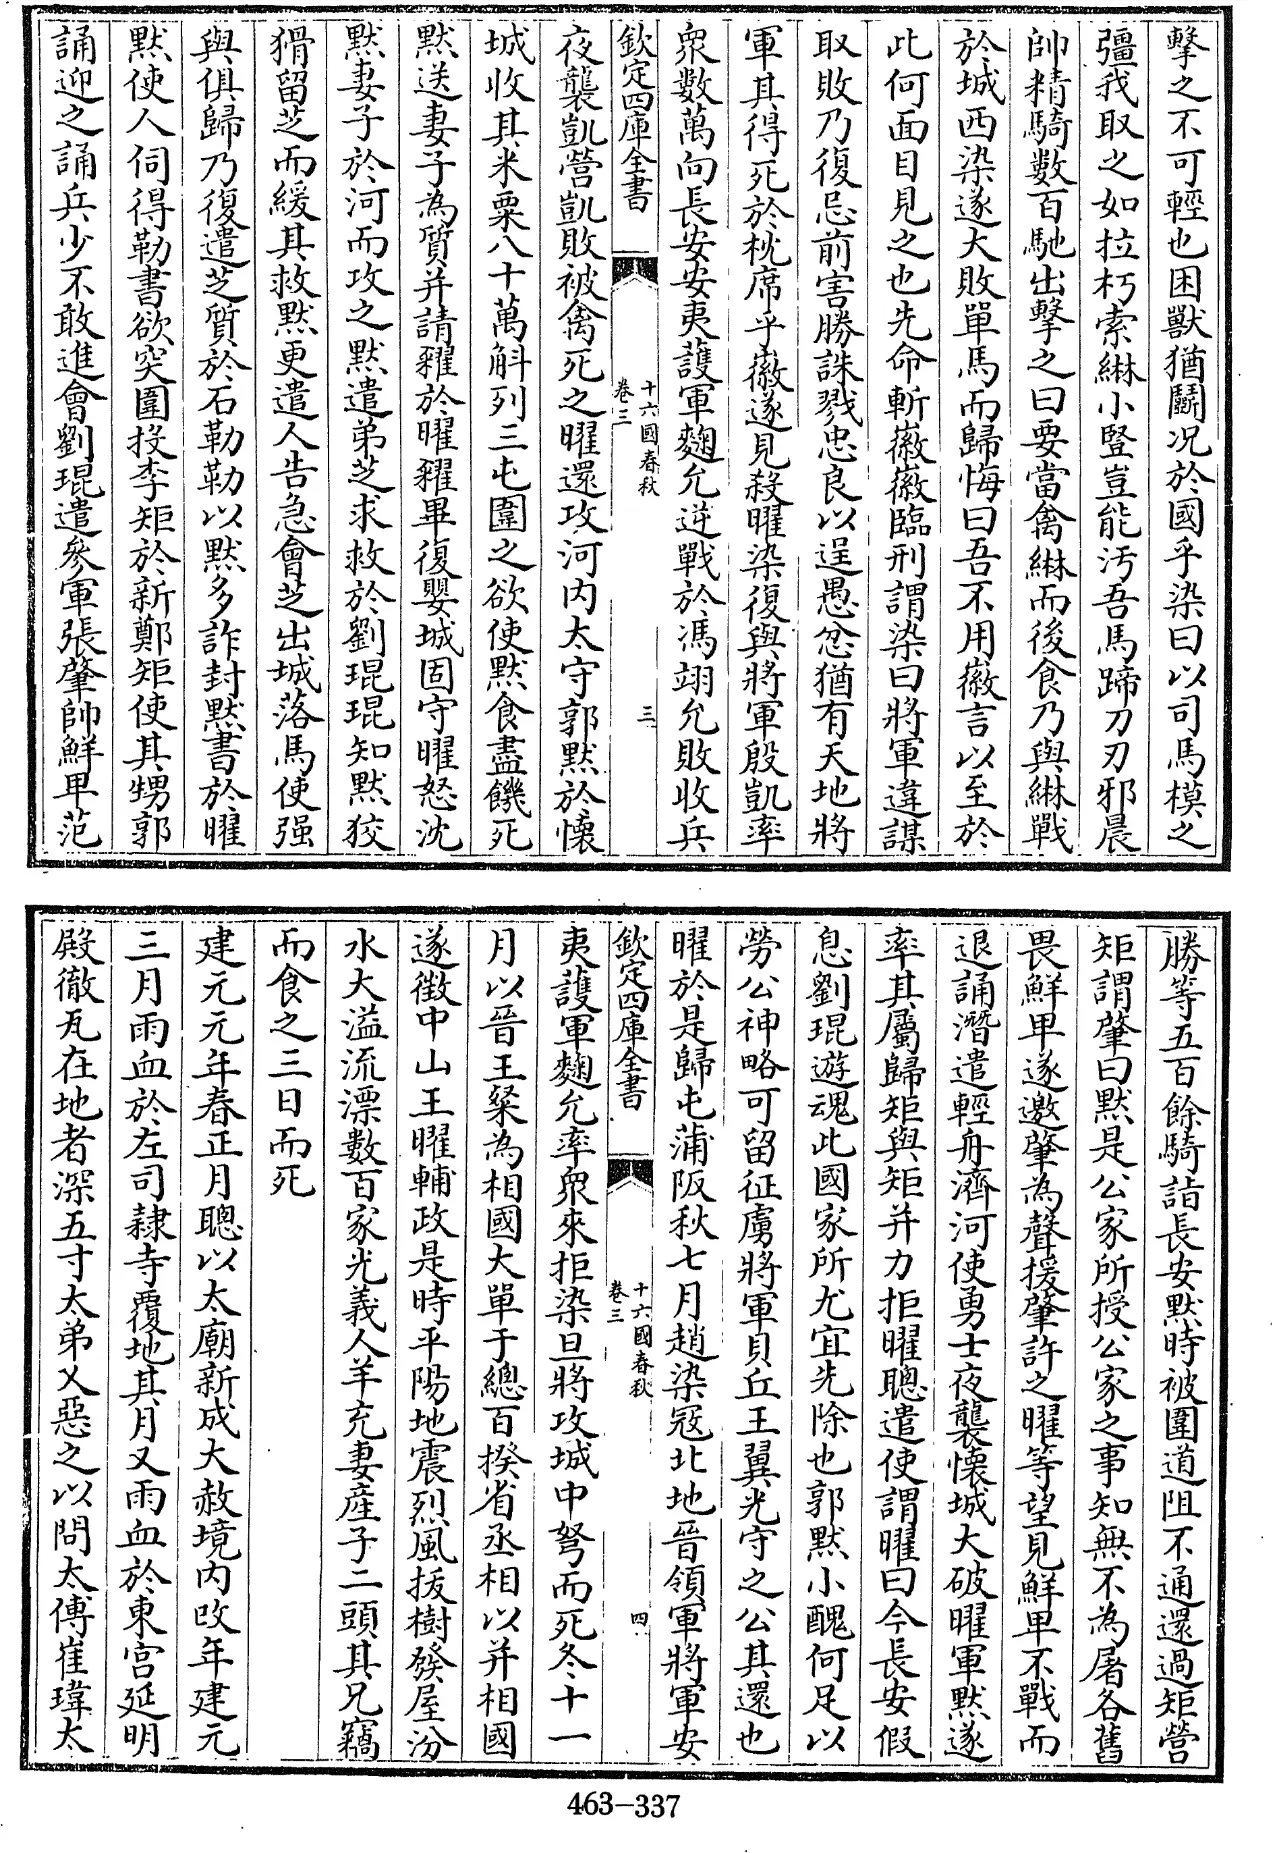 擊之不可輕也困獸猶鬬况於國乎染曰以司馬模之
彊我取之如拉朽索綝小豎豈能汚吾馬蹄刀刃邪晨
帥精騎數百馳出擊之曰要當禽綝而後食乃與綝戰
於城西染遂大敗單馬而歸悔曰吾不用徽言以至於
此何面目見之也先命斬徽徽臨刑謂染曰將軍違謀
取敗乃復忌前害勝誅戮忠良以逞愚忿猶有天地將
軍其得死於枕席乎徽遂見殺曜染復與將軍殷凱率
衆數萬向長安安夷護軍麴允逆戰於馮翊允敗收兵
欽定四庫全書
十六國春秋
卷三
三
夜襲凱營凱敗被禽死之曜還攻河内太守郭默於懷
城收其米粟八十萬斛列三屯圍之欲使默食盡饑死
默送妻子為質并請糴於曜糴畢復嬰城固守曜怒沈
默妻子於河而攻之默遣弟芝求救於劉琨琨知默狡
猾留芝而緩其救默更遣人告急會芝出城落馬使强
與俱歸乃復遣芝質於石勒勒以默多詐封默書於曜
默使人伺得勒書欲突圍投李矩於新鄭矩使其甥郭
誦迎之誦兵少不敢進會劉琨遣參軍張肇帥鮮卑范
勝等五百餘騎詣長安默時被圍道阻不通還過矩營
矩謂肇曰默是公家所授公家之事知無不為屠各舊
畏鮮卑遂邀肇為聲援肇許之曜等望見鮮卑不戰而
退誦潛遣輕舟濟河使勇士夜襲懷城大破曜軍默遂
率其屬歸矩與矩并力拒曜聰遣使謂曜曰今長安假
息劉琨遊魂此國家所尤宜先除也郭默小醜何足以
勞公神略可留征虜將軍貝丘王翼光守之公其還也
曜於是歸屯蒲阪秋七月趙染寇北地晉領軍將軍安
欽定四庫全書
十六國春秋
卷三
四
夷護軍麴允率衆來拒染旦將攻城中弩而死冬十一
月以晉王粲為相國大單于總百揆省丞相以并相國
遂徵中山王曜輔政是時平陽地震烈風拔樹發屋汾
水大溢流漂數百家光義人羊充妻産子二頭其兄竊
而食之三日而死
建元元年春正月聰以太廟新成大赦境内改年建元
三月雨血於左司隷寺覆地其月又雨血於東宮延明
殿徹瓦在地者深五寸太弟乂惡之以問太傅崔瑋太
463-337